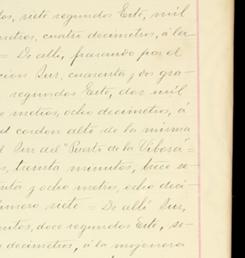 tos, siete segundos Este, mil
metros, cuatro decimetros, á la
= De allí, pasando por el
cion Sur, cuarenta y dos gra-
segundos Este, dos mil
metros, ocho decimetros, á
cordon alto de la misma
al Sur del "Puerto de la Vibora"=
s, treinta minutos, trece se-
enta y ocho metros, ocho deci-
número siete = De allí Sur,
nutos, doce segundos Este, se-
o decimetros, á la mojonera